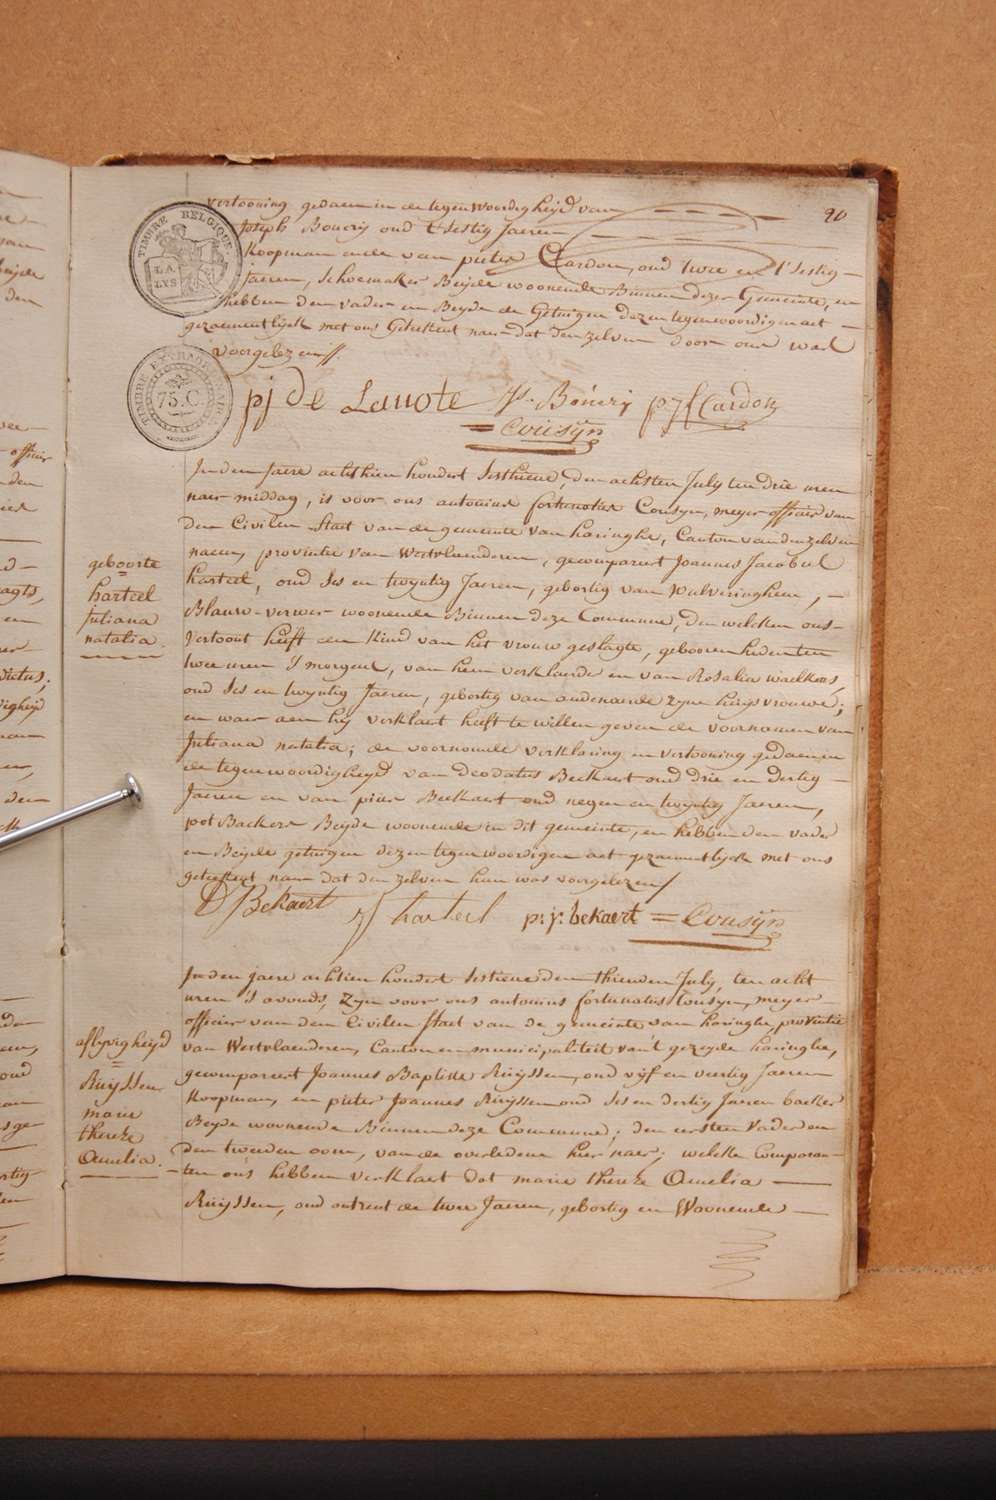 20
TIMBRE BELGIQUE
LA LYS
TIMBRE EXTRAORDINAIRE
75.C
vertooning gedaen in de tegenwoordigheyd van
Joseph Boucry oud t'sestig Jaeren
Koopman ende van pieter Cardon, oud twee en t'sestig
Jaeren, schoemaker Beÿde woonende Binnen dezer Gemeente, en
hebben den vader en Beyde de Getuigen dezen tegenwoordigen act
gezaementlyck met ons Geteekent naer dat den zelven door ons was
voorgelezen //.
pj de Lanote js. Boucry pjf Cardon
= Cousÿn
geboorte
=
harteel
Juliana
natalia.
In den Jaere achthien hondert sesthiene, den achtsten July ten drie uren
naer middag, is voor ons antonius fortunatus Cousyn, meyer officier van
den Civilen Staet van de gemeente van haringhe, Canton van den zelven
naem, provintie van Westvlaenderen, gecompareert Joannes Jacobus
harteel, oud ses en twyntig Jaeren, gebortig van Wulveringhem,
Blauw-verwer woonende Binnen deze Commune, den welcken ons
vertoont heeft een kind van het vrouw geslagte, gebooren heden ten
twee uren s'morgens, van hem verklaerde en van Rosalia Waelkens,
oud ses en twyntig Jaeren, gebortig van audenaerde zyne huysvrouwe;
en waer aen hy verklaert heeft te willen geven de voornamen van
Juliana natalia; de voornoemde verklaring en vertooning gedaen in
de tegenwoordigheyd van Deodatus Beckaert oud drie en dertig
Jaeren en van pieter Beckaert oud negen en twyntig Jaeren,
pot Backers Beyde woonende in dit gemeente, en hebben den vader
en Beyde getuigen dezen tegenwoordigen act gezaementlyck met ons
geteekent naer dat den zelven hun was voorgelezen /
D Bekaert jj harteel p:j: bekaert = Cousÿn
aflyvigheyd
=
Ruyssen
marie
thereze
Amelia.
In den jaere achtien hondert sestiene den thienden July, ten acht
uren 's avonds, zyn voor ons antonius fortunatus Cousyn, meyer
officier van den Civilen Staet van de gemeente van haringhe, provintie
van Westvlaenderen, Canton en municipaliteit van't gezeyde haringhe,
gecompareert Joannes Baptiste Ruÿssen, oud vÿf en viertig Jaeren
Koopman, en pieter Joannes Ruÿssen oud ses en dertig Jaeren backer
Beyde woonende Binnen deze Commune; den eersten Vader en
den tweeden oom, van de overledene hier naer; welke Comparan-
ten ons hebben verklaert dat marie thereze Amelia
Ruÿssen, oud ontrent de twee Jaeren, gebortig en Woonende